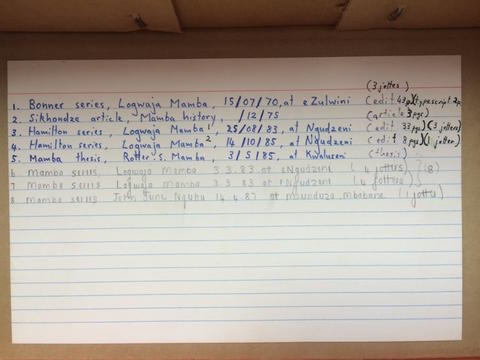 (3 jotters)
1. Bonner series, Logwaja Mamba, 15/07/70, at eZulwini (edit 43p)(typescript 2p
2. Sikhondze article, Mamba history, /12/75 (article 3pgs)
3. Hamilton series, Logwaja Mamba¹, 25/08/83, at Ngudzeni (edit 33pgs)(3 jotters)
4. Hamilton series, Logwaja Mamba², 14/10/85, at Ngudzeni (edit 8pgs)(1 jotter)
5. Mamba thesis, Rotter S. Mamba, 3/5/85, at Kwaluseni (thesis)
6 Mamba series Logwaja Mamba 3.3.83 at Ngudzeni (4 jotters) (8)
7 Mamba series Logwaja Mamba 3 3 83 at Ngudzeni (4 jotters)
8 Mamba series John 14.4.87 at Mbabane (1 jotter)